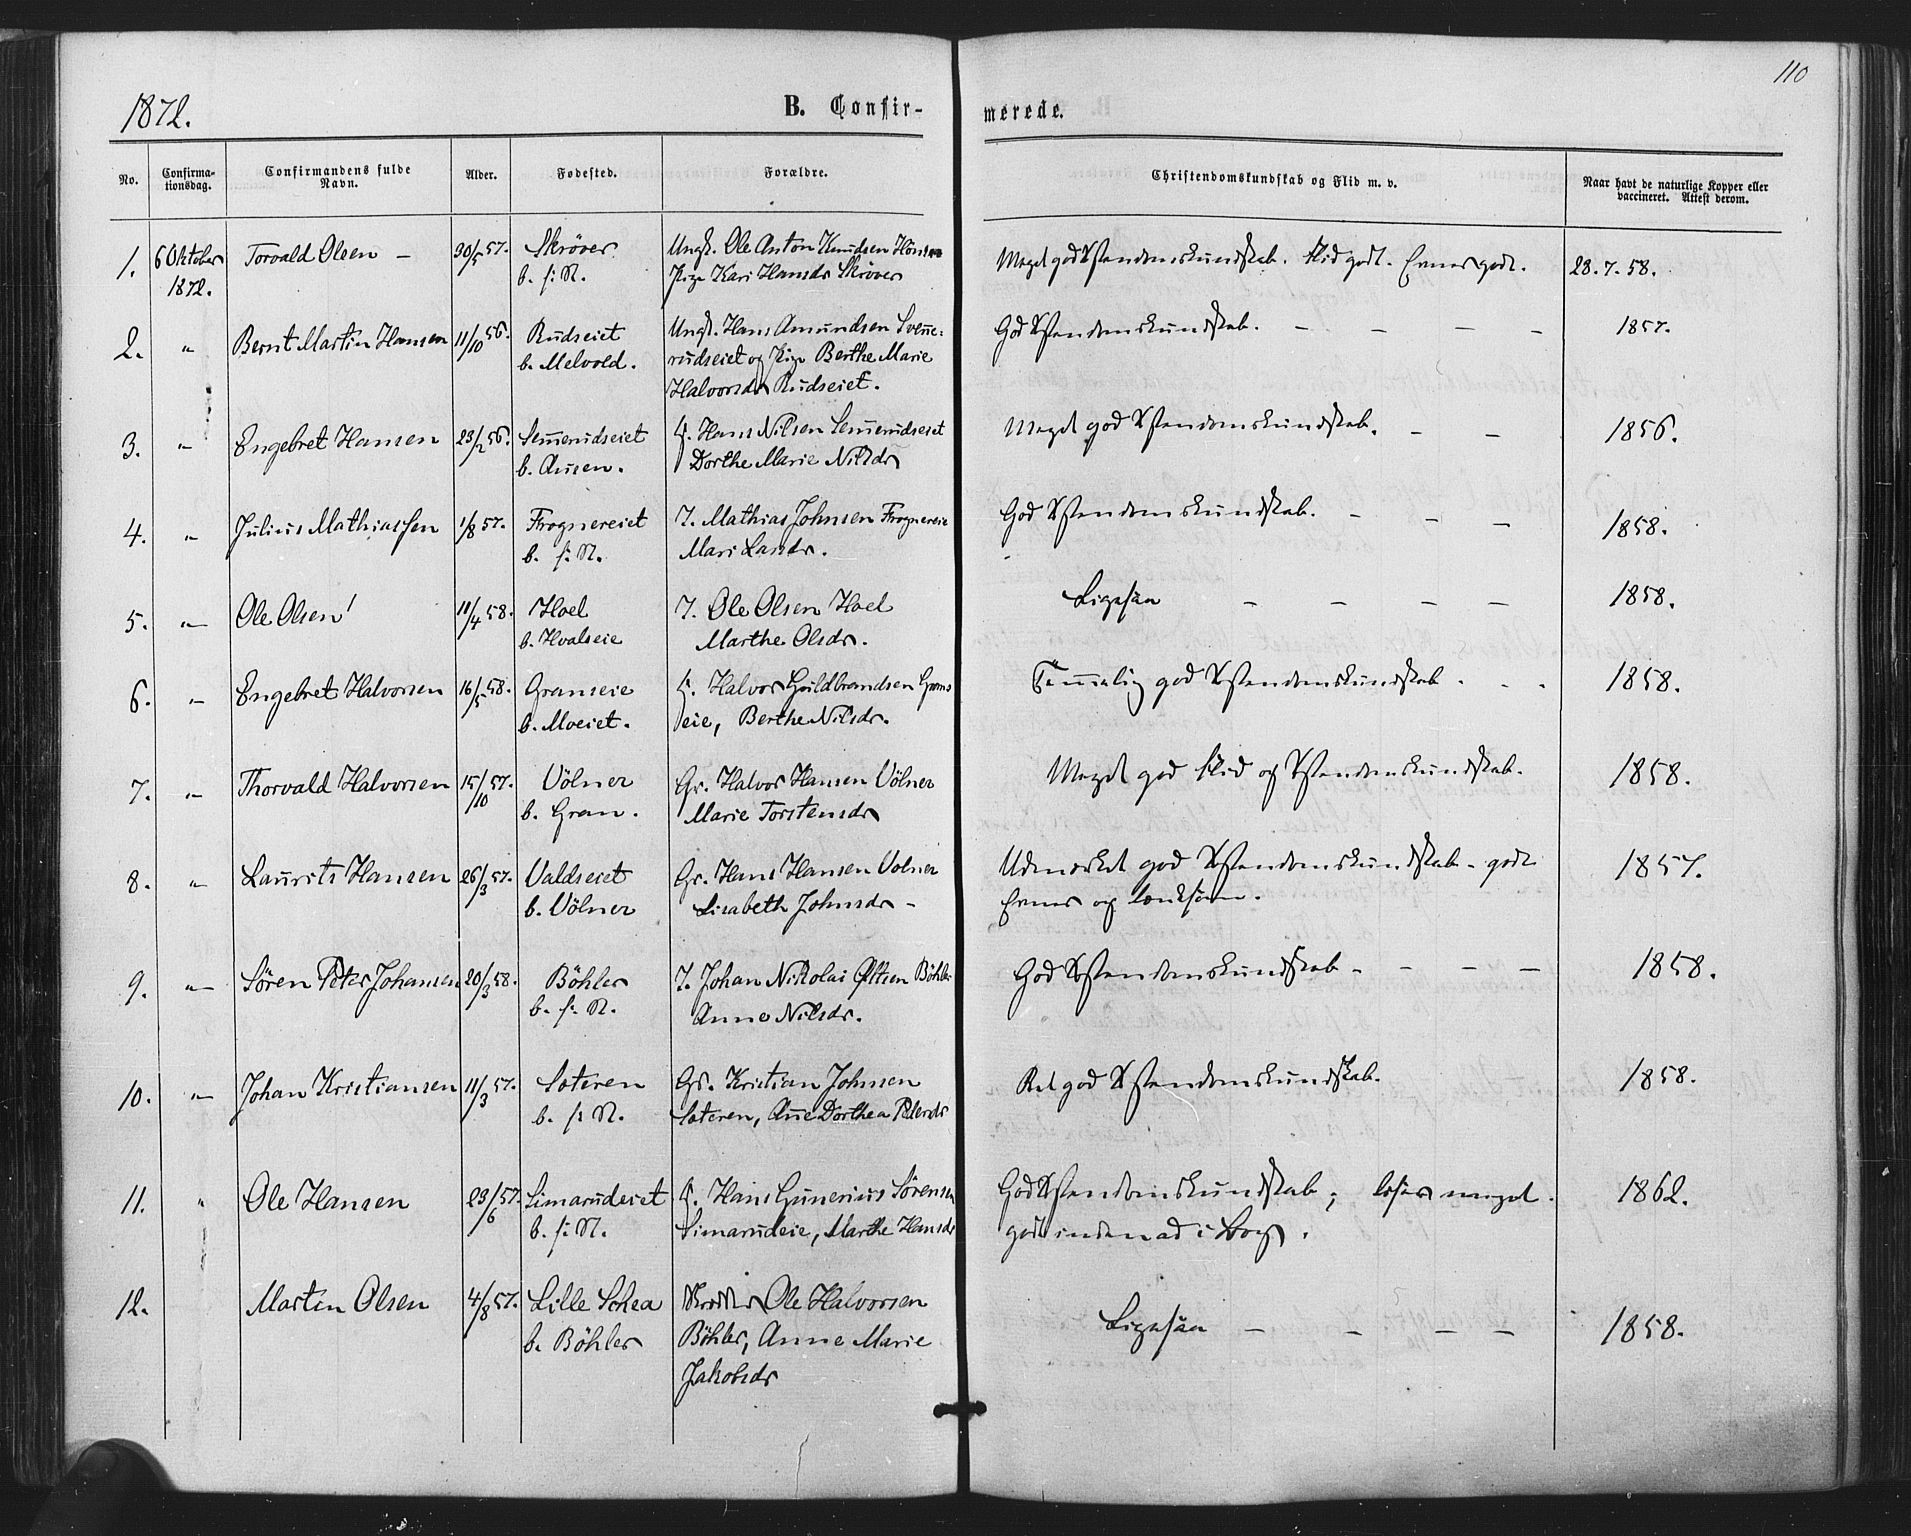 110
1872.
B. Confir-
merede.
No.
Confirma-
tionsdag.
Confirmandens fulde
Navn.
Alder.
Fødested.
Forældre.
Christendomskundskab og Flid m. v.
Naar havt de naturlige Kopper eller
vaccineret. Attest derom.
1. 6 Oktober Torvald Olsen – 30/5 57. Skröver Ungk. Ole Anton Knudsen Meget god Xstendomskundskab. Flid godt. Evner godt. 28. 7. 58.
1872. b. s. N. Pige Kari Hansdr Skröver
2. " Bernt Martin Hansen 11/10 56. Rudseiet Ungk. Hans Amundsen God Xstendomskundskab. – – – – 1857.
b. Melvold. rudseiet og Pige Berthe Marie
Halvorsdr Rudseiet.
3. " Engebret Hansen 23/2 56. Semerudseiet Hans Nilsen Semerudseiet Meget god Xstendomskundskab. – – 1856.
b. Ausen. Dorthe Marie Nilsdr
4. " Julius Mathiassen 1/8 57. Frognereiet I. Mathias Johnsen Frognereie God Xstendomskundskab. – – – 1858.
b. s. N. Mari Larsdr.
5. " Ole Olsen 11/4 58. Hoel I. Ole Olsen Hoel Ligesaa – – – – 1858.
b. Hvalseie Marthe Olsdr.
6. " Engebret Halvorsen 16/5 58. Granseie Halvor Guldbrandsen Grans Temmelig god Xstendomskundskab . . . 1858.
b. Moeiet. eie, Berthe Nilsdr.
7. " Thorvald Halvorsen 15/10 57. Völner Gr. Halvor Hansen Völner Meget god Flid og Xstendomskundskab. 1858.
b. Gran. Marie Torstensdr
8. " Laurits Hansen 26/3 57. Valdseiet Gr. Hans Hansen Volner Udmærket god Xstendomskundskab – gode 1857.
b. Völner Lisabeth Johnsdr – Evner og
9. " Sören Peter Johansen 20/3 58. Böhler I. Johan Nikolai Olsen Böhler God Xstendomskundskab – – – – 1858.
b. s. N. Anne Nilsdr.
10. " Johan Kristiansen 11/3 57. Soteren Gr. Kristian Johnsen Ret god Xstendomskundskab. 1858.
b. s. N. Soteren, Ane Dorthea Pedersdr
11. " Ole Hansen 23/6 57. Simarudeiet Hans Gunerius Sörensen God Xstendomskundskab; læser meget 1862.
b. s. N. Simarudeie, Marthe Hansdr godt indenad i Bog.
12. Martin Olsen 4/8 57. Lille Sohea Skrædder Ole Halvorsen Ligesaa – – – – 1858.
b. Böhler Böhler, Anne Marie
Jakobsdr